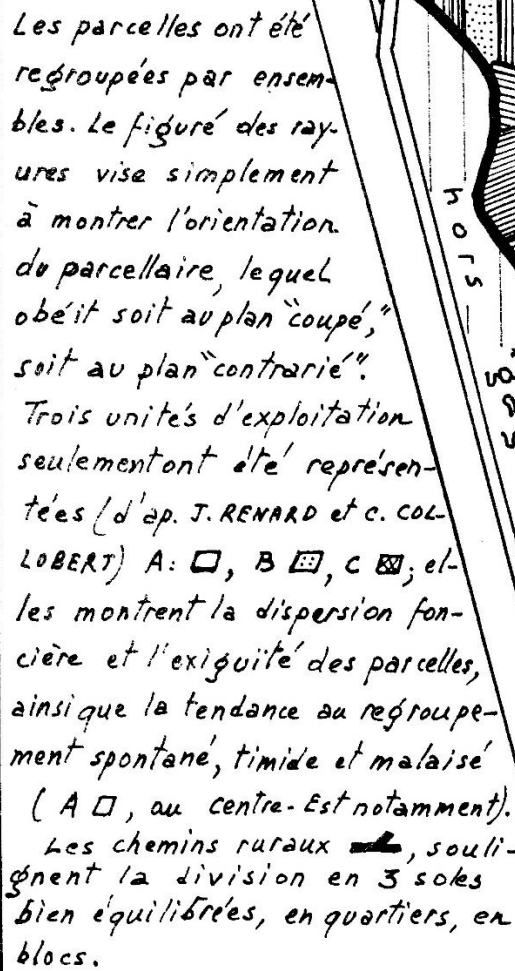 Les parcelles ont été
regroupées par ensem-
bles. Le figuré des ray-
ures vise simplement
à montrer l'orientation
du parcellaire, lequel
obéit soit au plan "coupé,"
soit au plan "contrarié".
Trois unités d'exploitation
seulement ont été représen-
tées (d'ap. J. RENARD et C. COL-
LOBERT) A: □, B ▤, C ▩; el-
les montrent la dispersion fon-
cière et l'exiguïté des parcelles,
ainsi que la tendance au regroupe-
ment spontané, timide et malaisé
(A □, au centre-Est notamment).
Les chemins ruraux , souli-
gnent la division en 3 soles
bien équilibrées, en quartiers, en
blocs.
hors